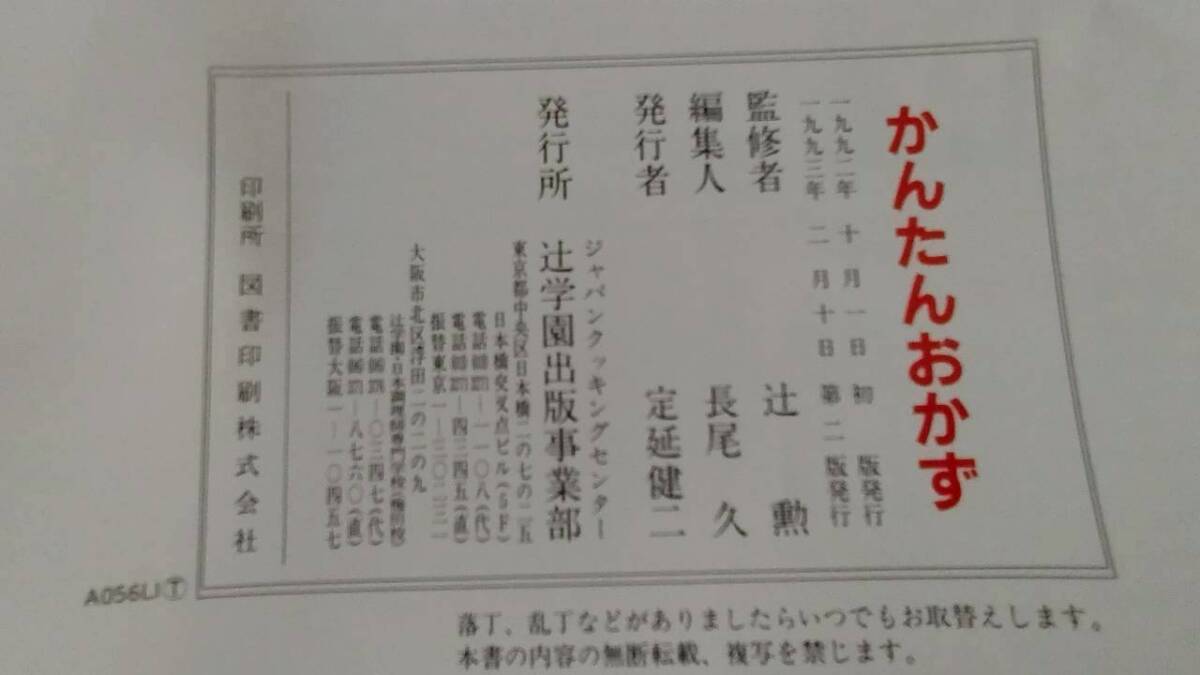 かんたんおかず
一九九二年 十月 一日 初 版発行
一九九三年 二月十日 第二版発行
監修者 辻 勲
編集人 長尾 久
発行者 定延健二
ジャパンクッキングセンター
発行所 辻学園出版事業部
東京都中央区日本橋二の七の二五
日本橋交叉点ビル(5F)
電話 ―一一〇八(代)
電話 ―四二四五(直)
振替東京一―三〇二二一
大阪市北区浮田二の二の九
辻学園・日本調理師専門学校
電話 ―〇三四七(代)
電話 ―八七六〇(直)
振替大阪一―一〇四五七
印刷所 図書印刷株式会社
A056LJⓉ
落丁、乱丁などがありましたらいつでもお取替えします。
本書の内容の無断転載、複写を禁じます。